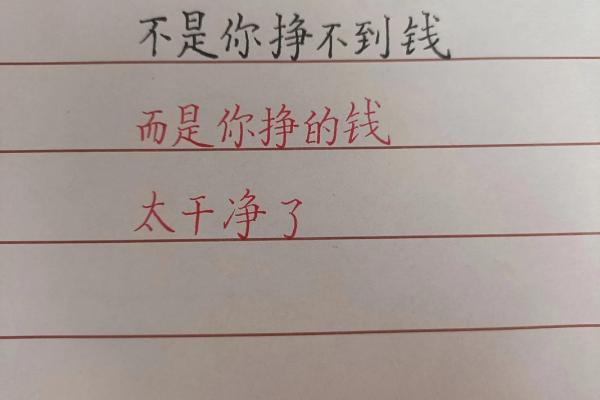 不是你挣不到钱
而是你挣的钱
太干净了